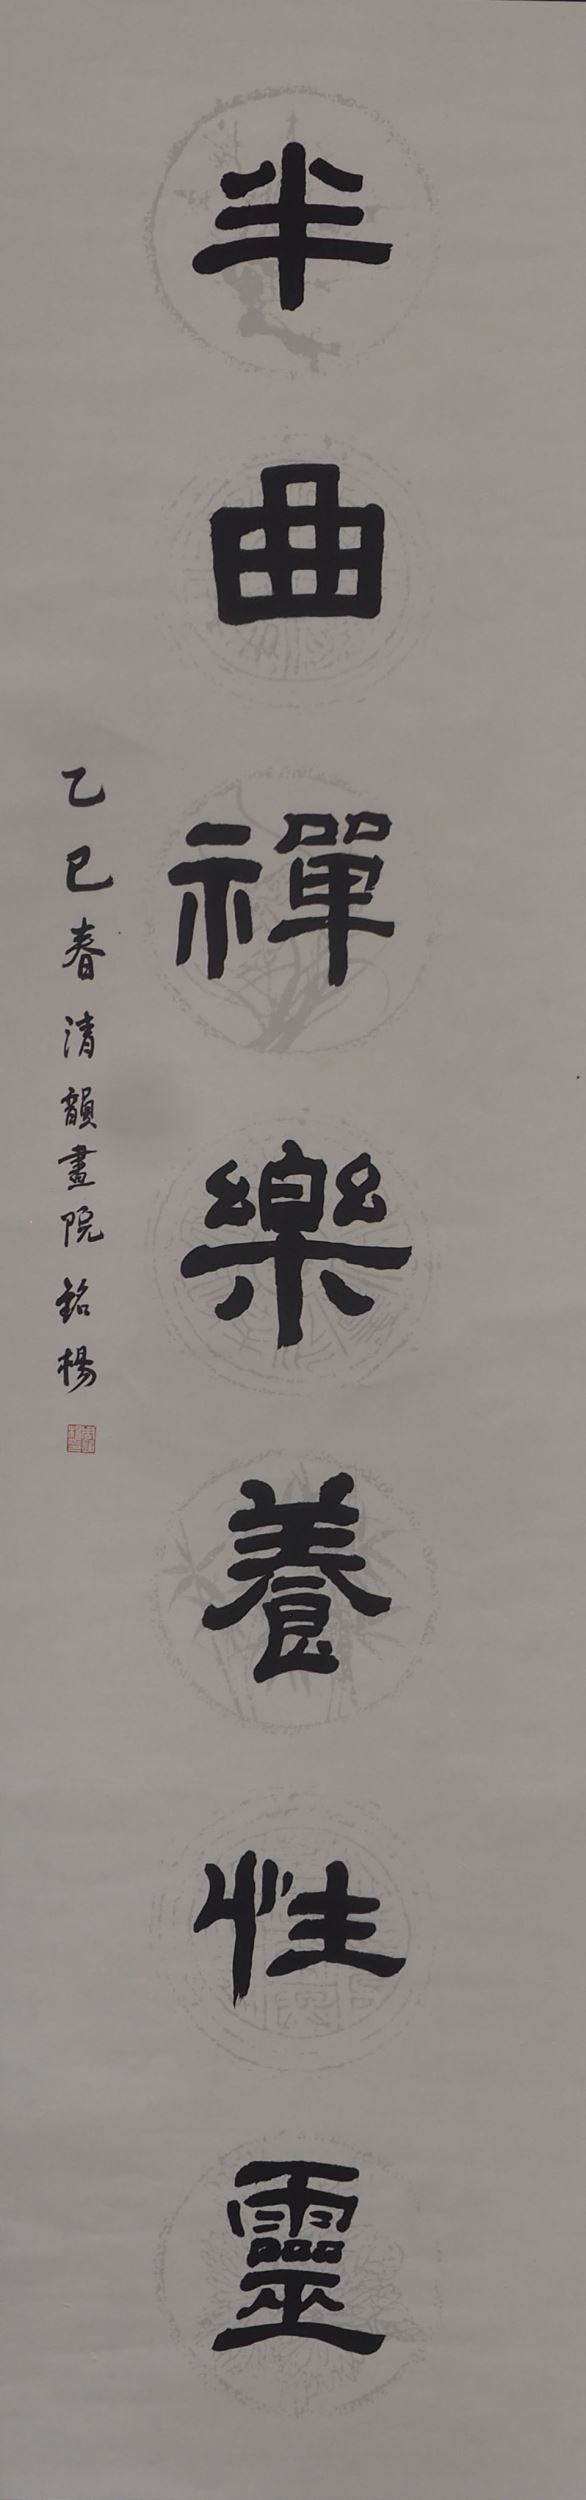 半曲禪樂養性靈
乙巳春清韻畫院銘楊